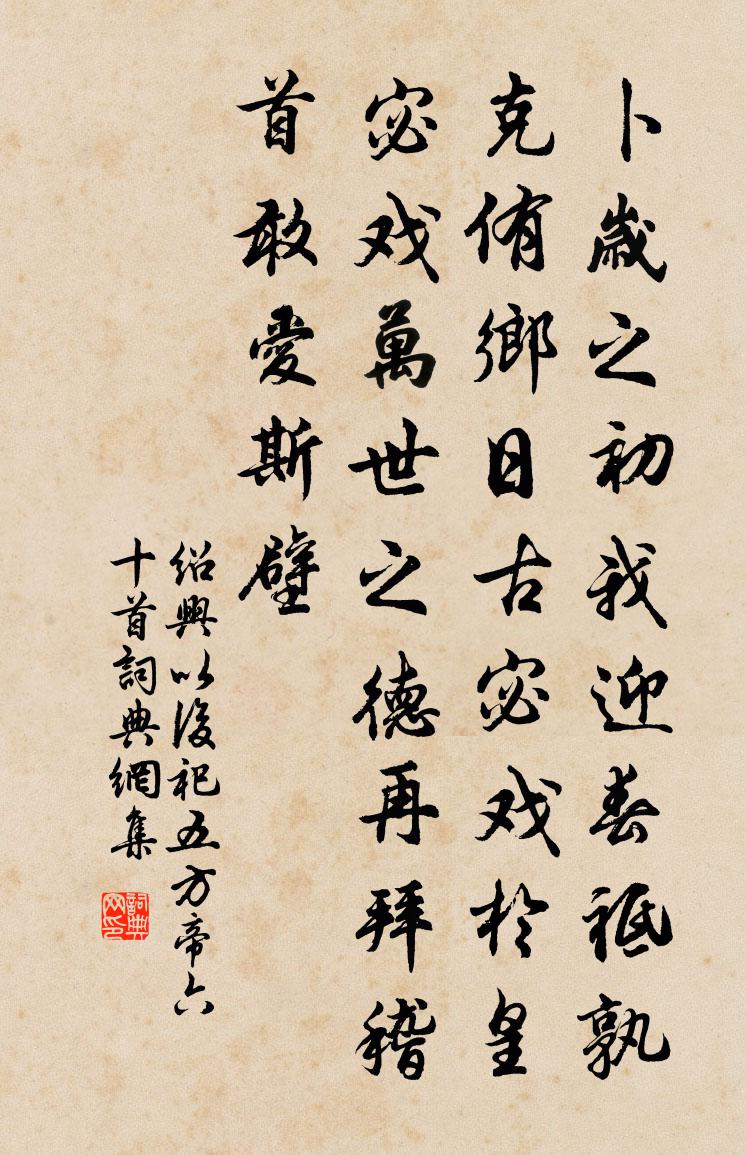 卜歲之初我迎春祗孰
克侑鄉日古宓戏於皇
宓戏萬世之德再拜稽
首敢愛斯璧
紹興以後祀五方帝六
十首詞典網集
詞典网印